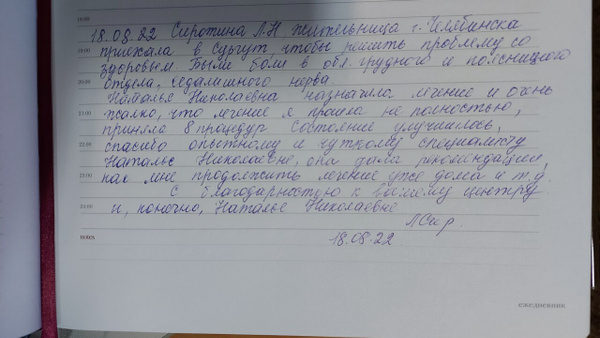 18.08.22 Сиротина Л.Н. жительница г. Челябинска
приехала в Сургут, чтобы решить проблему со
здоровьем. Были боли в обл. грудного и поясничного
отдела, седалишного нерва.
Наталья Николаевна назначила лечение и очень
жалко, что лечение я прошла не полностью,
приняла 8 процедур. Состояние улучшилось,
спасибо опытному и чуткому специалисту
Наталье Николаевне, она дала рекомендации,
как мне продолжить лечение уже дома и т.д.
С благодарностью к вашему центру
и, конечно, Наталье Николаевне
ЛСир.
18.08.22
19:00
20:00
21:00
22:00
23:00
notes
ежедневник